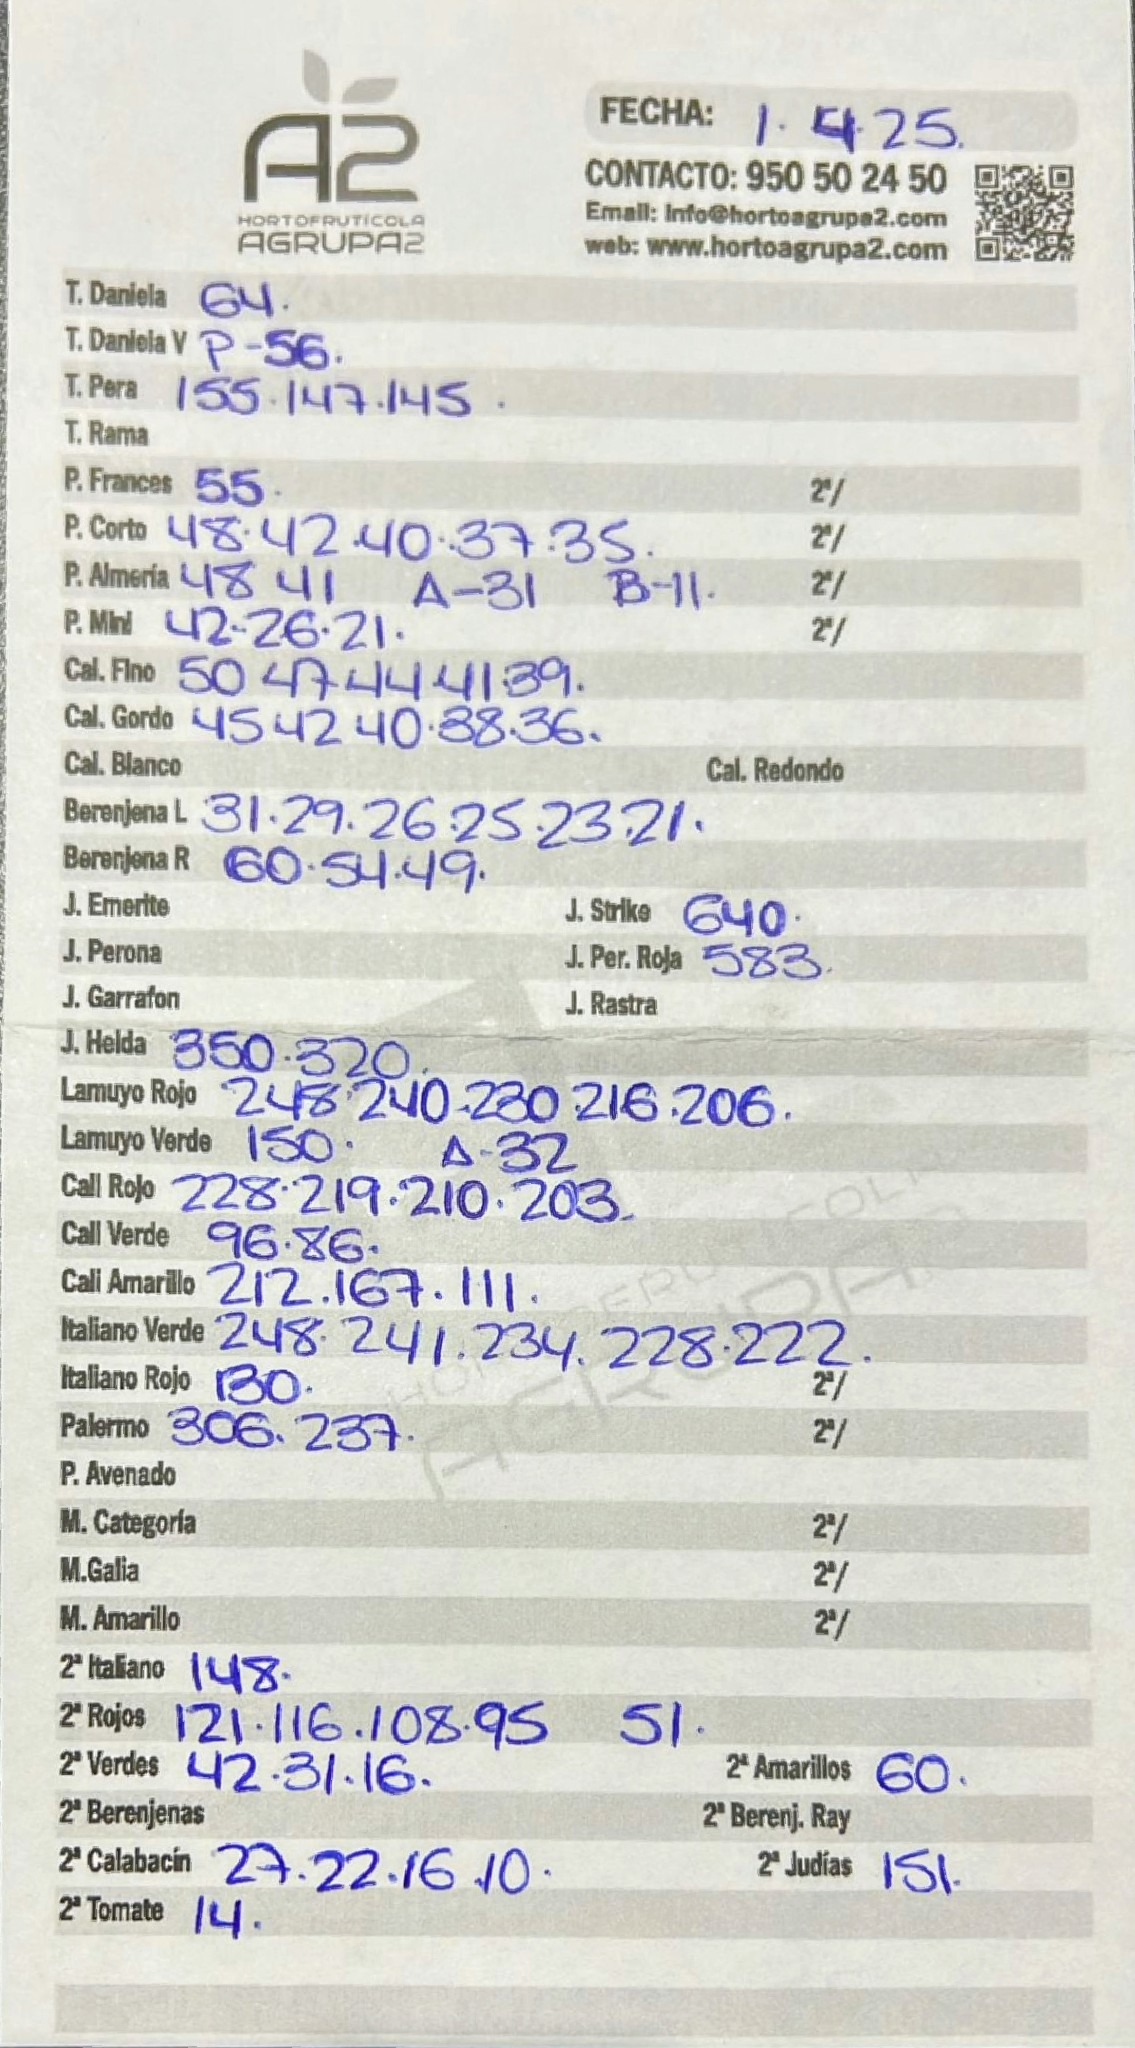 A2
HORTOFRUTÍCOLA
AGRUPA2
FECHA: 1. 4. 25.
CONTACTO: 950 50 24 50
Email: info@hortoagrupa2.com
web: www.hortoagrupa2.com
T. Daniela 64.
T. Daniela V P-56.
T. Pera 155.147.145.
T. Rama
P. Frances 55. 2ª/
P. Corto 48.42.40.37.35. 2ª/
P. Almería 48 41 A-31 B-11. 2ª/
P. Mini 42-26.21. 2ª/
Cal. Fino 50 47 44 41.39.
Cal. Gordo 45 42 40.38.36.
Cal. Blanco Cal. Redondo
Berenjena L 31.29.26.25.23.21.
Berenjena R 60.54.49.
J. Emerite J. Strike 640.
J. Perona J. Per. Roja 583.
J. Garrafon J. Rastra
J. Helda 350.320.
Lamuyo Rojo 248.240.230.216.206.
Lamuyo Verde 150. A-32
Cali Rojo 228.219.210.203.
Cali Verde 96.86.
Cali Amarillo 212.167.111.
Italiano Verde 248.241.234.228.222.
Italiano Rojo 130. 2ª/
Palermo 306.237. 2ª/
P. Avenado
M. Categoría 2ª/
M.Galia 2ª/
M. Amarillo 2ª/
2ª Italiano 148.
2ª Rojos 121.116.108.95 51.
2ª Verdes 42.31.16. 2ª Amarillos 60.
2ª Berenjenas 2ª Berenj. Ray
2ª Calabacín 27.22.16.10. 2ª Judías 151.
2ª Tomate 14.